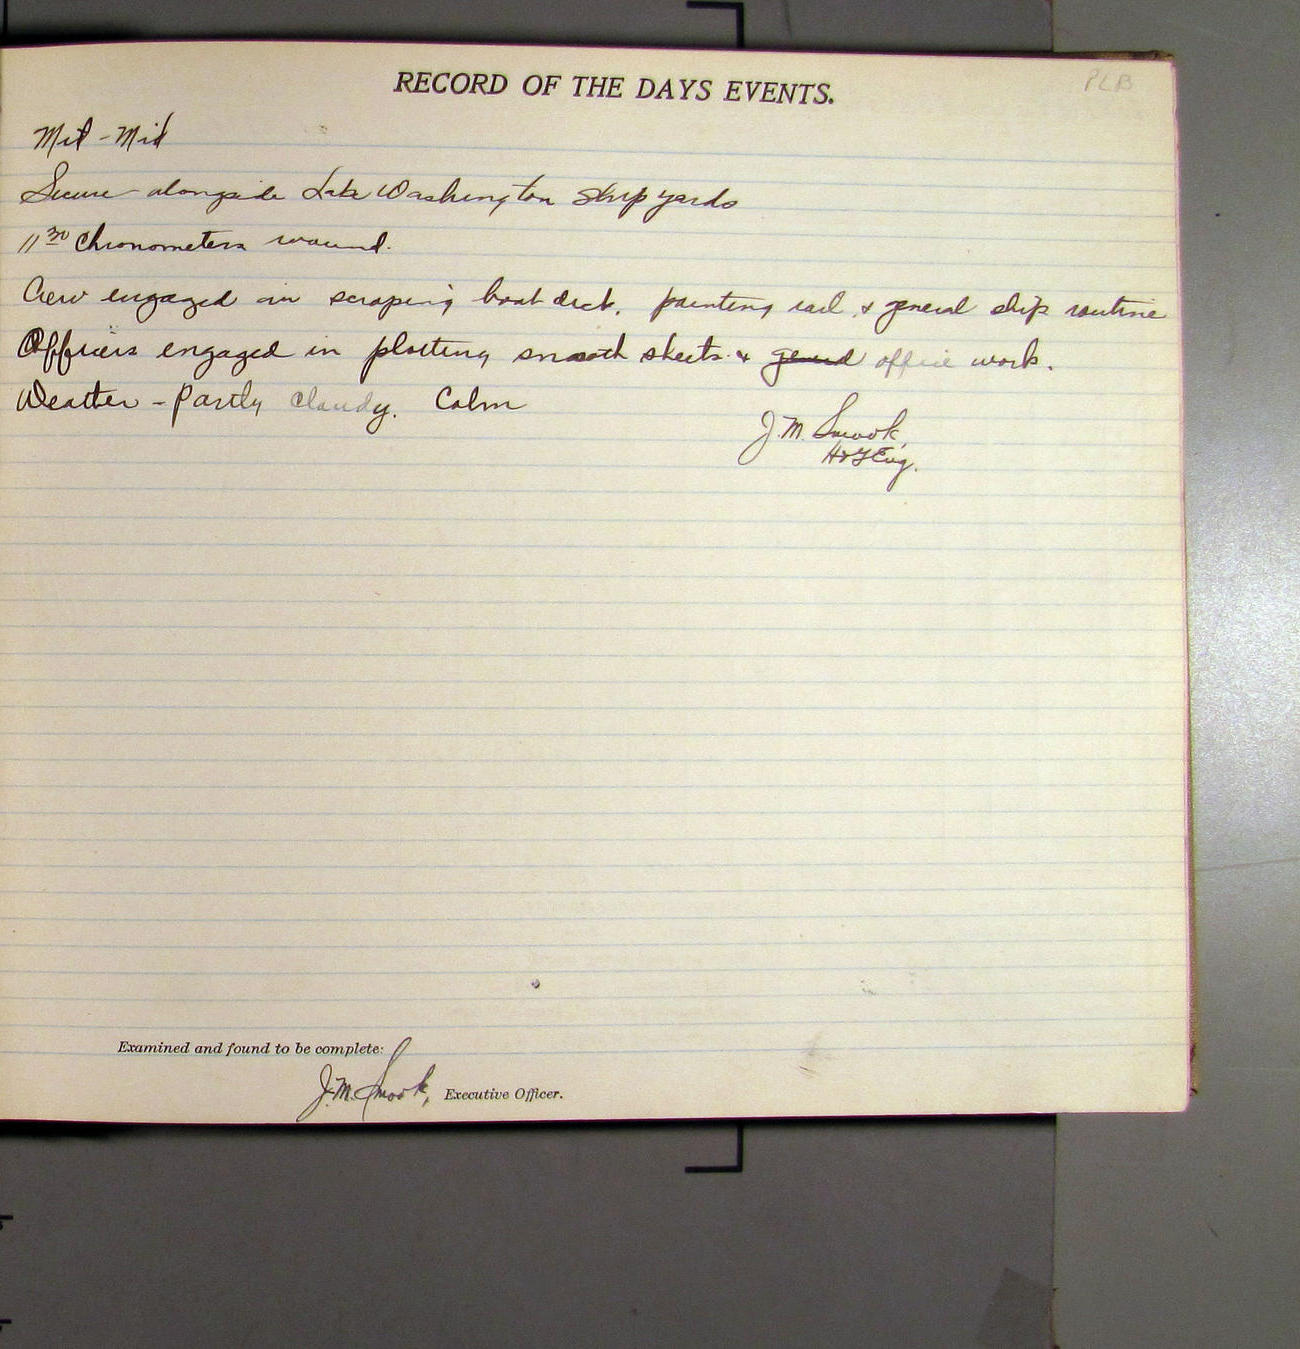 PLB
RECORD OF THE DAYS EVENTS.
Mid - Mid
Secure alongside Lake Washington Ship yards
11 30 Chronometers wound.
Crew engaged in scraping boat deck, painting rail & general ship routine
Officers engaged in plotting smooth sheets & genral office work.
Weather - Partly cloudy. Calm
J. M. Smook,
H&GEng.
Examined and found to be complete:
J. M. Smook, Executive Officer.